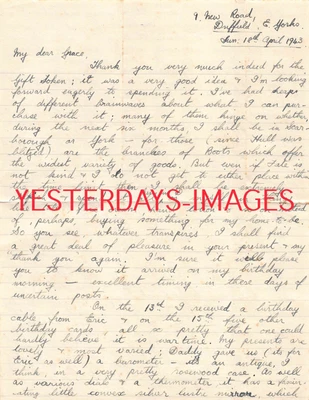 9, New Road,
Driffield, E. Yorks.
Sun. 18th April 1943
My dear Grace,
Thank you very much indeed for the
gift token; it was a very good idea & I'm looking
forward eagerly to spending it. I've had heaps
of different brainwaves about what I can pur-
chase with it; many of them hinge on whether
during the next six months I shall be in Scar-
borough or York for those (since Hull was
blitzed) are the branches of Boots which offer
the widest variety of goods. But even if Fate is
not kind & I do not get to either place within
the time limit, then I shall be
YESTERDAYS-IMAGES
of, perhaps, buying something for my home
So you see, whatever transpires I shall find
a great deal of pleasure in your present & my
thank you again. I'm sure it will please
you to know it arrived on my birthday
morning — excellent timing in these days of
uncertain posts.
On the 13th I received a birthday
cable from Eric & on the 15th five other
birthday cards all so pretty that one could
hardly believe it is wartime. My presents are
lovely & most varied; Daddy gave us (it's for
Eric as well) a barometer – it's an antique, I
think, in a very pretty rosewood case. As well
as various dials & a thermometer it has a fascin-
ating little convex silver lustre mirror which